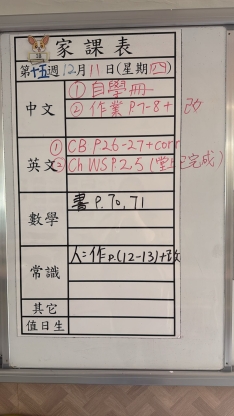 家課表
第十五週12月11日(星期四)
中文
① 自學冊
② 作業 P.7-8+改
英文
① CB P.26-27+corr
② Ch WS P.2-5 (堂上已完成)
數學
書 P.70,71
常識
人:作 p.(12-13)+改
其它
值日生